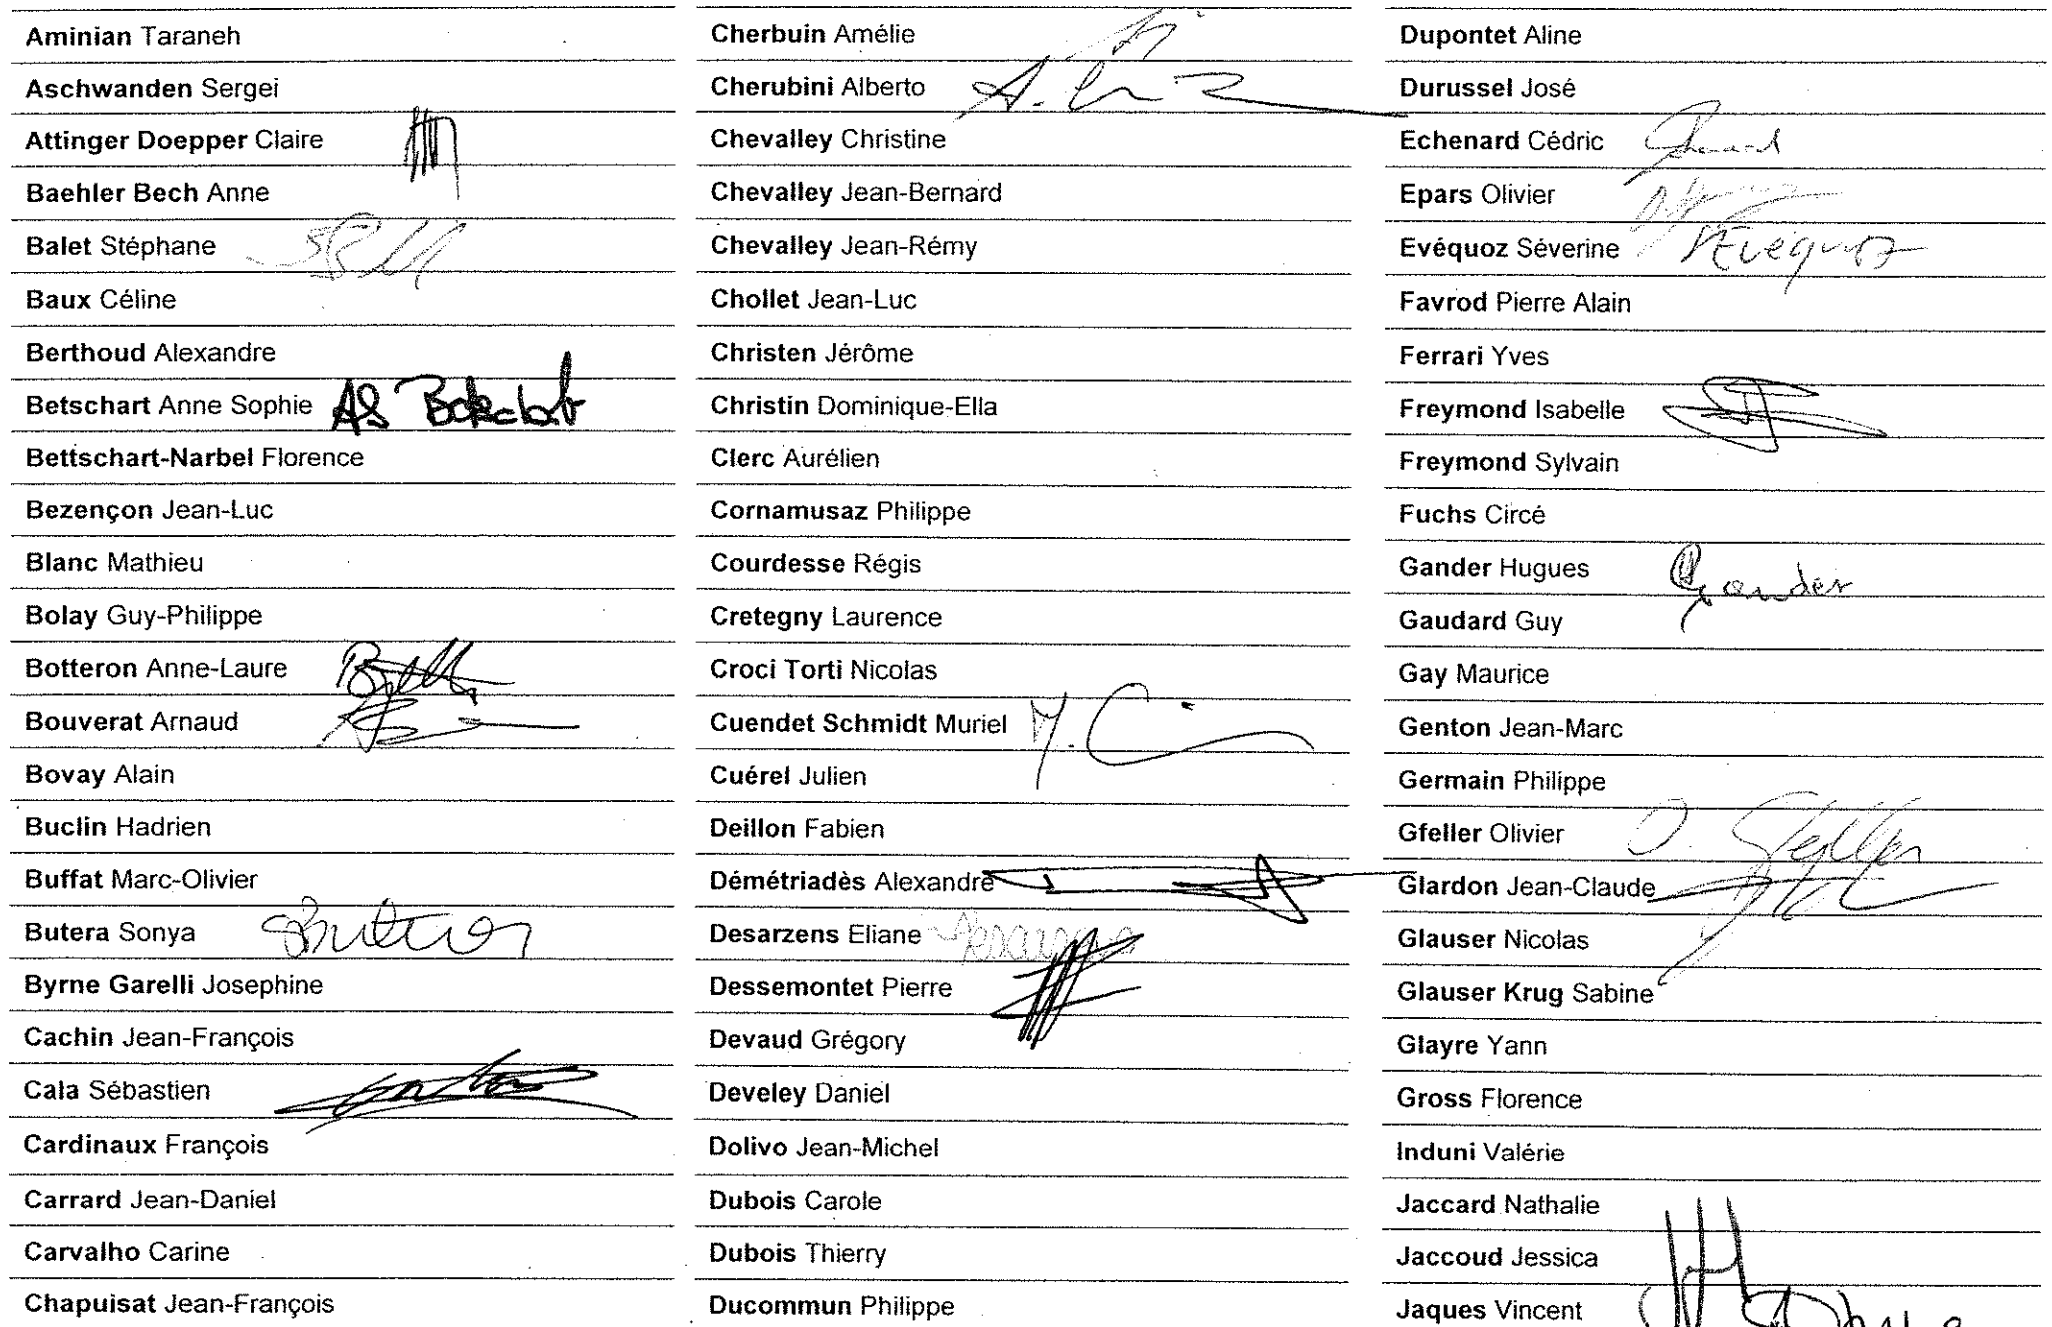 Aminian Taraneh
Aschwanden Sergei
Attinger Doepper Claire
Baehler Bech Anne
Balet Stéphane
Baux Céline
Berthoud Alexandre
Betschart Anne Sophie AS
Bettschart-Narbel Florence
Bezençon Jean-Luc
Blanc Mathieu
Bolay Guy-Philippe
Botteron Anne-Laure
Bouverat Arnaud
Bovay Alain
Buclin Hadrien
Buffat Marc-Olivier
Butera Sonya SButera
Byrne Garelli Josephine
Cachin Jean-François
Cala Sébastien
Cardinaux François
Carrard Jean-Daniel
Carvalho Carine
Chapuisat Jean-François
Cherbuin Amélie
Cherubini Alberto
Chevalley Christine
Chevalley Jean-Bernard
Chevalley Jean-Rémy
Chollet Jean-Luc
Christen Jérôme
Christin Dominique-Ella
Clerc Aurélien
Cornamusaz Philippe
Courdesse Régis
Cretegny Laurence
Croci Torti Nicolas
Cuendet Schmidt Muriel
Cuérel Julien
Deillon Fabien
Démétriadès Alexandre
Desarzens Eliane Desarzens
Dessemontet Pierre
Devaud Grégory
Develey Daniel
Dolivo Jean-Michel
Dubois Carole
Dubois Thierry
Ducommun Philippe
Dupontet Aline
Durussel José
Echenard Cédric
Epars Olivier
Evéquoz Séverine SEvéquoz
Favrod Pierre Alain
Ferrari Yves
Freymond Isabelle
Freymond Sylvain
Fuchs Circé
Gander Hugues Gander
Gaudard Guy
Gay Maurice
Genton Jean-Marc
Germain Philippe
Gfeller Olivier O. Gfeller
Glardon Jean-Claude
Glauser Nicolas
Glauser Krug Sabine
Glayre Yann
Gross Florence
Induni Valérie
Jaccard Nathalie
Jaccoud Jessica
Jaques Vincent